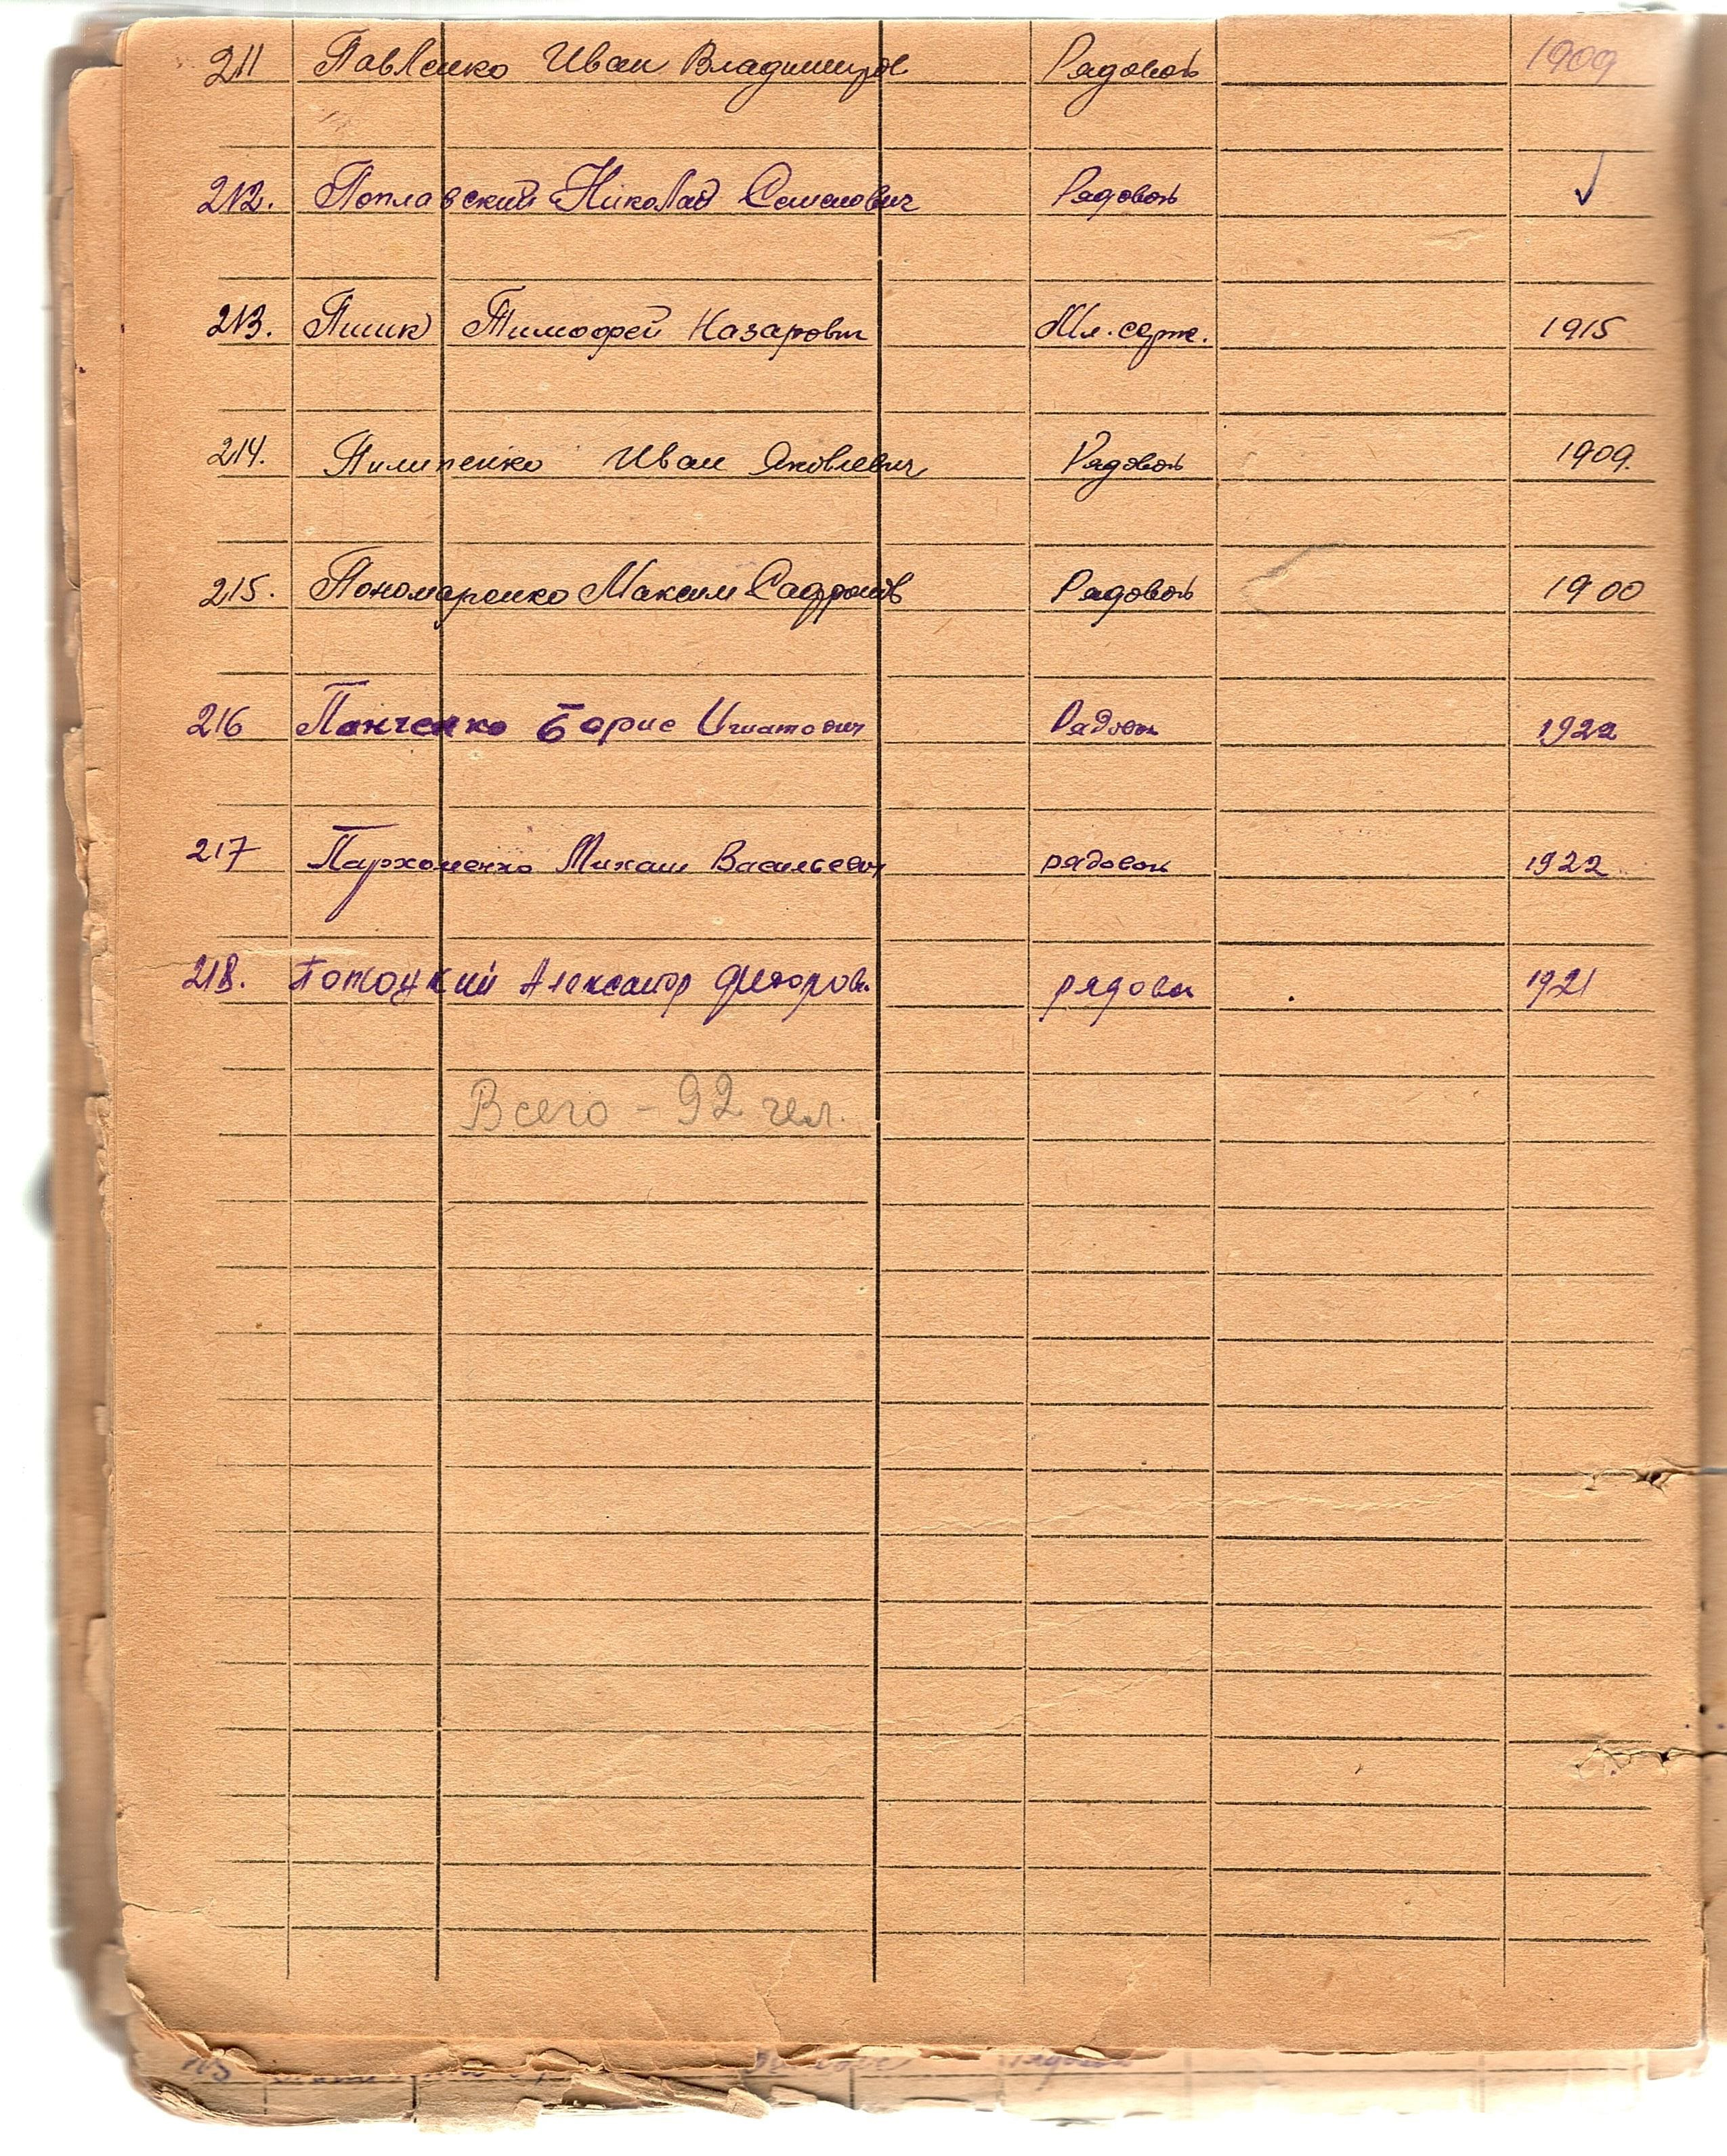 211 Павленко Иван Владимиров Рядовой 1909
212. Поплавский Николай Семенович Рядовой ✓
213. Пшик Тимофей Назарович Мл. серж. 1915
214. Пилипенко Иван Яковлевич Рядовой 1909.
215. Пономаренко Максим Рядовой 1900
216 Панченко Борис Игнатович Рядовой 1922
217 Пархоменко Михаил Васильевич рядовой 1922
218. Потоцкий Александр Федоров. рядовой 1921
Всего - 92 чел.